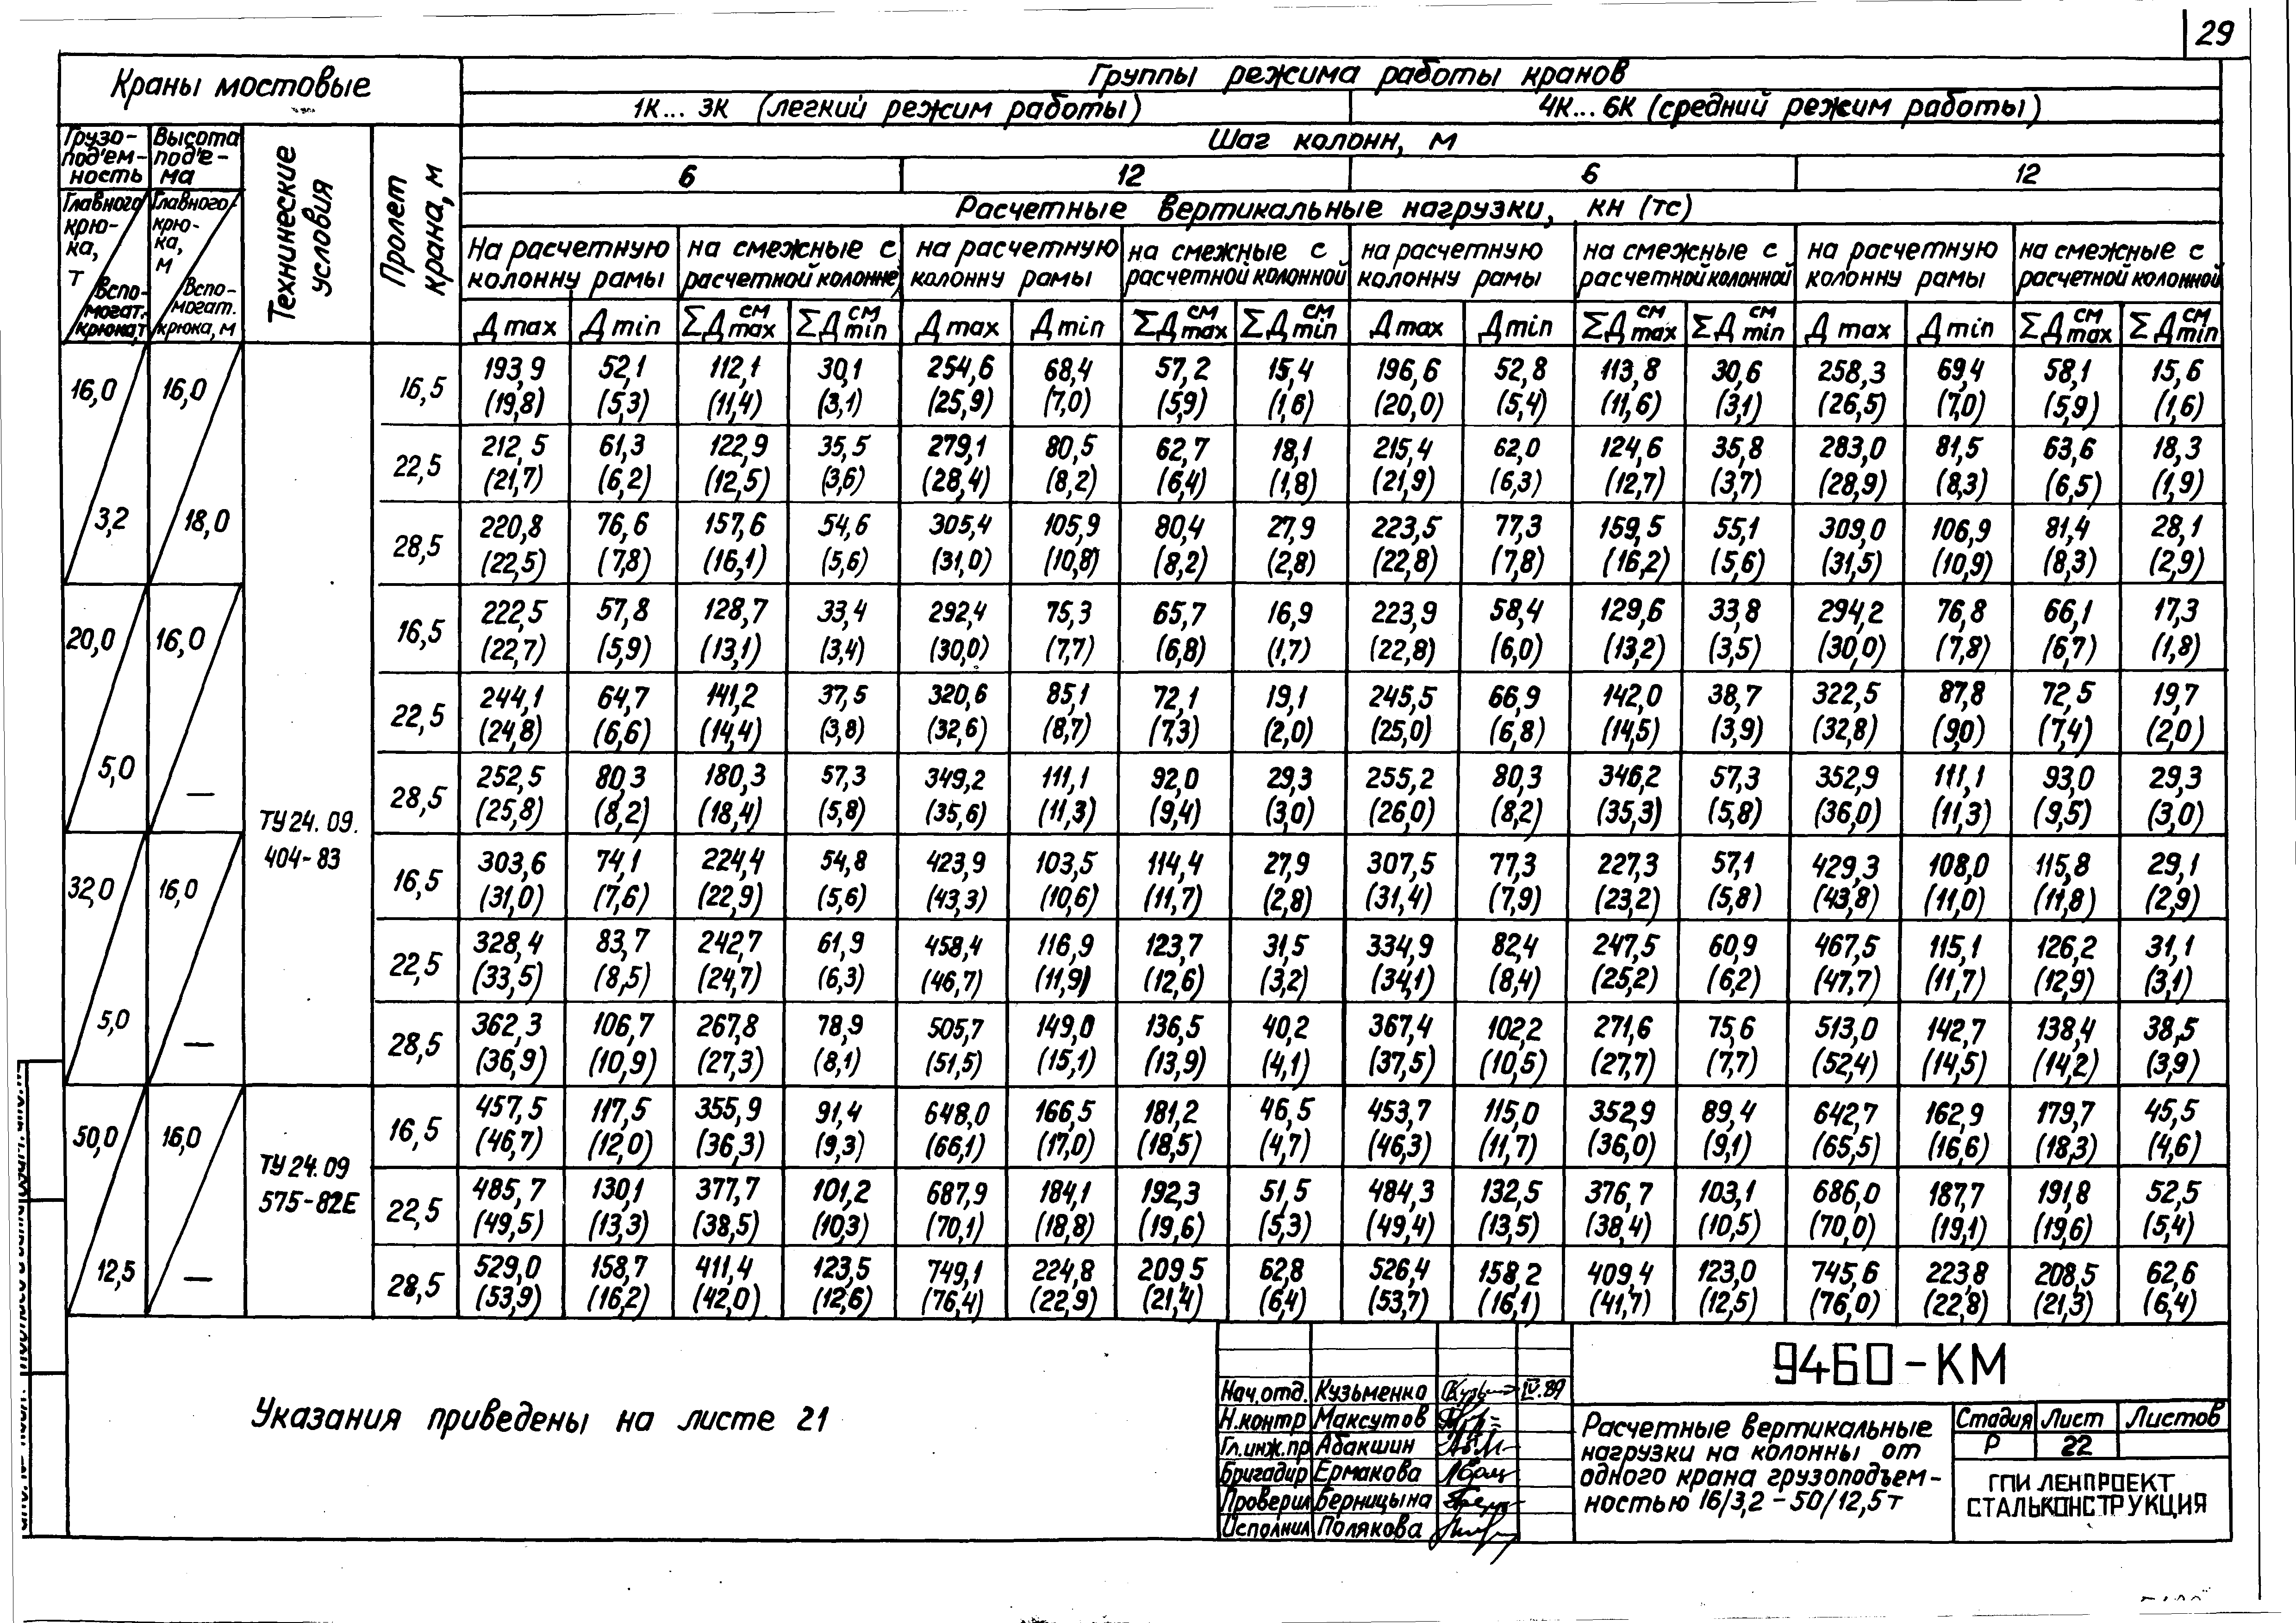 29
Краны мостовые
Группы режима работы кранов
1К... 3К (легкий режим работы)
4К... 6К (средний режим работы)
Грузо-
под'ем-
ность
Высота
под'е-
ма
Технические
условия
Пролет
крана, м
Шаг колонн, м
6
12
6
12
Главного
крю-
ка,
т
Вспо-
могат.
крюка,т
Главного
крю-
ка,
м
Вспо-
могат.
крюка, м
Расчетные вертикальные нагрузки, кн (тс)
На расчетную
колонну рамы
на смежные с
расчетной колонне
на расчетную
колонну рамы
на смежные с
расчетной колонной
на расчетную
колонну рамы
на смежные с
расчетной колонной
на расчетную
колонну рамы
на смежные с
расчетной колонной
Д max Д min ΣД см max ΣД см min Д max Д min ΣД см max ΣД см min Д max Д min ΣД см max ΣД см min Д max Д min ΣД см max ΣД см min
16,0
3,2
16,0
18,0
16,5
193,9 52,1 112,1 30,1 254,6 68,4 57,2 15,4 196,6 52,8 113,8 30,6 258,3 69,4 58,1 15,6
(19,8) (5,3) (11,4) (3,1) (25,9) (7,0) (5,9) (1,6) (20,0) (5,4) (11,6) (3,1) (26,5) (7,0) (5,9) (1,6)
22,5
212,5 61,3 122,9 35,5 279,1 80,5 62,7 18,1 215,4 62,0 124,6 35,8 283,0 81,5 63,6 18,3
(21,7) (6,2) (12,5) (3,6) (28,4) (8,2) (6,4) (1,8) (21,9) (6,3) (12,7) (3,7) (28,9) (8,3) (6,5) (1,9)
28,5
220,8 76,6 157,6 54,6 305,4 105,9 80,4 27,9 223,5 77,3 159,5 55,1 309,0 106,9 81,4 28,1
(22,5) (7,8) (16,1) (5,6) (31,0) (10,8) (8,2) (2,8) (22,8) (7,8) (16,2) (5,6) (31,5) (10,9) (8,3) (2,9)
20,0
5,0
16,0
—
16,5
222,5 57,8 128,7 33,4 292,4 75,3 65,7 16,9 223,9 58,4 129,6 33,8 294,2 76,8 66,1 17,3
(22,7) (5,9) (13,1) (3,4) (30,0) (7,7) (6,8) (1,7) (22,8) (6,0) (13,2) (3,5) (30,0) (7,8) (6,7) (1,8)
22,5
244,1 64,7 141,2 37,5 320,6 85,1 72,1 19,1 245,5 66,9 142,0 38,7 322,5 87,8 72,5 19,7
(24,8) (6,6) (14,4) (3,8) (32,6) (8,7) (7,3) (2,0) (25,0) (6,8) (14,5) (3,9) (32,8) (9,0) (7,4) (2,0)
28,5
252,5 80,3 180,3 57,3 349,2 111,1 92,0 29,3 255,2 80,3 346,2 57,3 352,9 111,1 93,0 29,3
(25,8) (8,2) (18,4) (5,8) (35,6) (11,3) (9,4) (3,0) (26,0) (8,2) (35,3) (5,8) (36,0) (11,3) (9,5) (3,0)
ТУ 24. 09.
404-83
32,0
5,0
16,0
—
16,5
303,6 74,1 224,4 54,8 423,9 103,5 114,4 27,9 307,5 77,3 227,3 57,1 429,3 108,0 115,8 29,1
(31,0) (7,6) (22,9) (5,6) (43,3) (10,6) (11,7) (2,8) (31,4) (7,9) (23,2) (5,8) (43,8) (11,0) (11,8) (2,9)
22,5
328,4 83,7 242,7 61,9 458,4 116,9 123,7 31,5 334,9 82,4 247,5 60,9 467,5 115,1 126,2 31,1
(33,5) (8,5) (24,7) (6,3) (46,7) (11,9) (12,6) (3,2) (34,1) (8,4) (25,2) (6,2) (47,7) (11,7) (12,9) (3,1)
28,5
362,3 106,7 267,8 78,9 505,7 149,0 136,5 40,2 367,4 102,2 271,6 75,6 513,0 142,7 138,4 38,5
(36,9) (10,9) (27,3) (8,1) (51,5) (15,1) (13,9) (4,1) (37,5) (10,5) (27,7) (7,7) (52,4) (14,5) (14,2) (3,9)
50,0
12,5
16,0
—
ТУ 24. 09
575-82Е
16,5
457,5 117,5 355,9 91,4 648,0 166,5 181,2 46,5 453,7 115,0 352,9 89,4 642,7 162,9 179,7 45,5
(46,7) (12,0) (36,3) (9,3) (66,1) (17,0) (18,5) (4,7) (46,3) (11,7) (36,0) (9,1) (65,5) (16,6) (18,3) (4,6)
22,5
485,7 130,1 377,7 101,2 687,9 184,1 192,3 51,5 484,3 132,5 376,7 103,1 686,0 187,7 191,8 52,5
(49,5) (13,3) (38,5) (10,3) (70,1) (18,8) (19,6) (5,3) (49,4) (13,5) (38,4) (10,5) (70,0) (19,1) (19,6) (5,4)
28,5
529,0 158,7 411,4 123,5 749,1 224,8 209,5 62,8 526,4 158,2 409,4 123,0 745,6 223,8 208,5 62,6
(53,9) (16,2) (42,0) (12,6) (76,4) (22,9) (21,4) (6,4) (53,7) (16,1) (41,7) (12,5) (76,0) (22,8) (21,3) (6,4)
Указания приведены на листе 21
Нач.отд. Кузьменко IV.89
Н.контр Максутов
Гл.инж.пр Абакшин
Бригадир Ермакова
Проверил Берницына
Исполнил Полякова
9460-КМ
Расчетные вертикальные
нагрузки на колонны от
одного крана грузоподъем-
ностью 16/3,2 - 50/12,5т
Стадия Лист Листов
Р 22
ГПИ ЛЕНПРОЕКТ
СТАЛЬКОНСТРУКЦИЯ